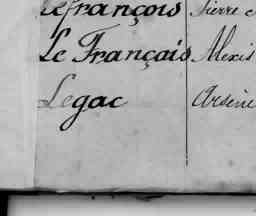 Lefrançois Pierre
Le François Alexis
Legac Arsène